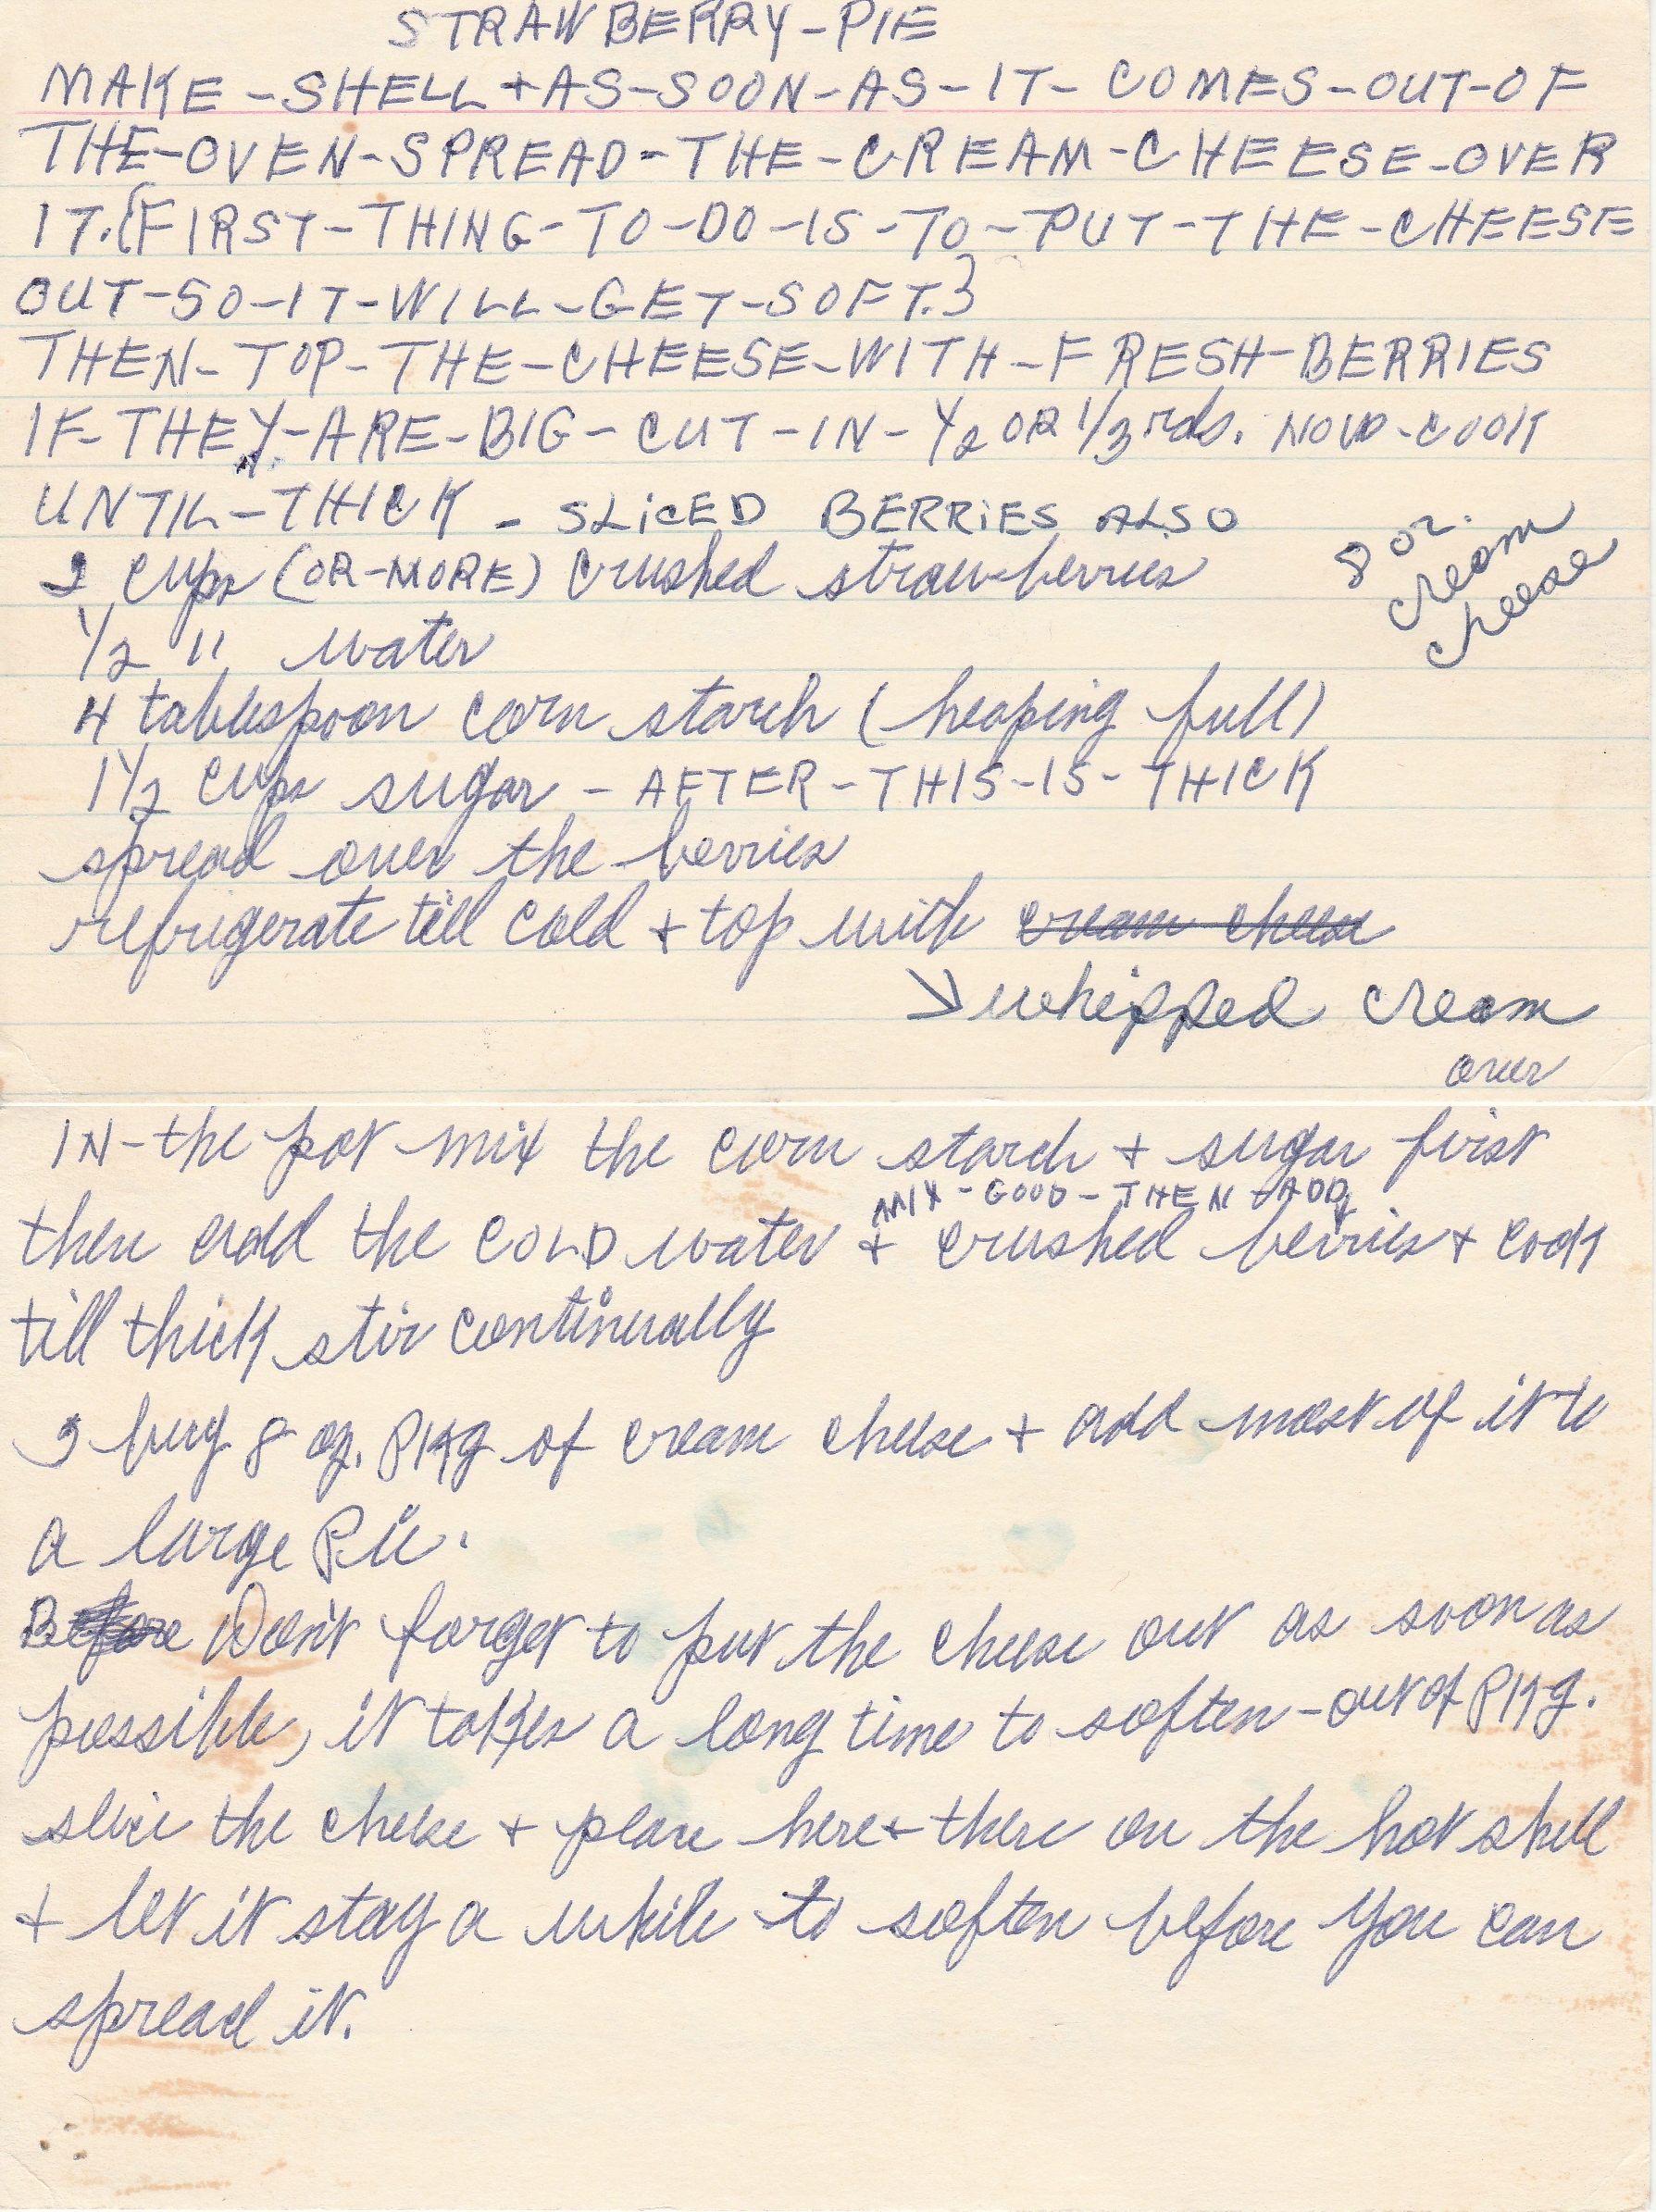 STRAWBERRY-PIE
MAKE-SHELL + AS-SOON-AS-IT-COMES-OUT-OF
THE-OVEN-SPREAD-THE-CREAM-CHEESE-OVER
IT.{FIRST-THING-TO-DO-IS-TO-PUT-THE-CHEESE
OUT-SO-IT-WILL-GET-SOFT.}
THEN-TOP-THE-CHEESE-WITH-FRESH-BERRIES
IF-THEY-ARE-BIG-CUT-IN-1/2 OR 1/3rds. NOW-COOK
UNTIL-THICK - SLiCED BERRiES ALSO
8 oz.
cream
cheese
2 cups (OR-MORE) crushed strawberries
1/2 " water
4 tablespoon corn starch (heaping full)
1 1/2 cups sugar - AFTER-THIS-IS-THICK
spread over the berries
refrigerate till cold + top with cream cheese
whipped cream
over
IN-the pot mix the corn starch + sugar first
MIX-GOOD-THEN-ADD
then add the COLD water + crushed berries + cook
till thick stir continually
I buy 8 oz. pkg of cream cheese + add most of it to
a large Pie.
Before Don't forget to put the cheese out as soon as
possible, it takes a long time to soften - out of pkg.
slice the cheese + place here + there on the hot shell
+ let it stay a while to soften before you can
spread it.